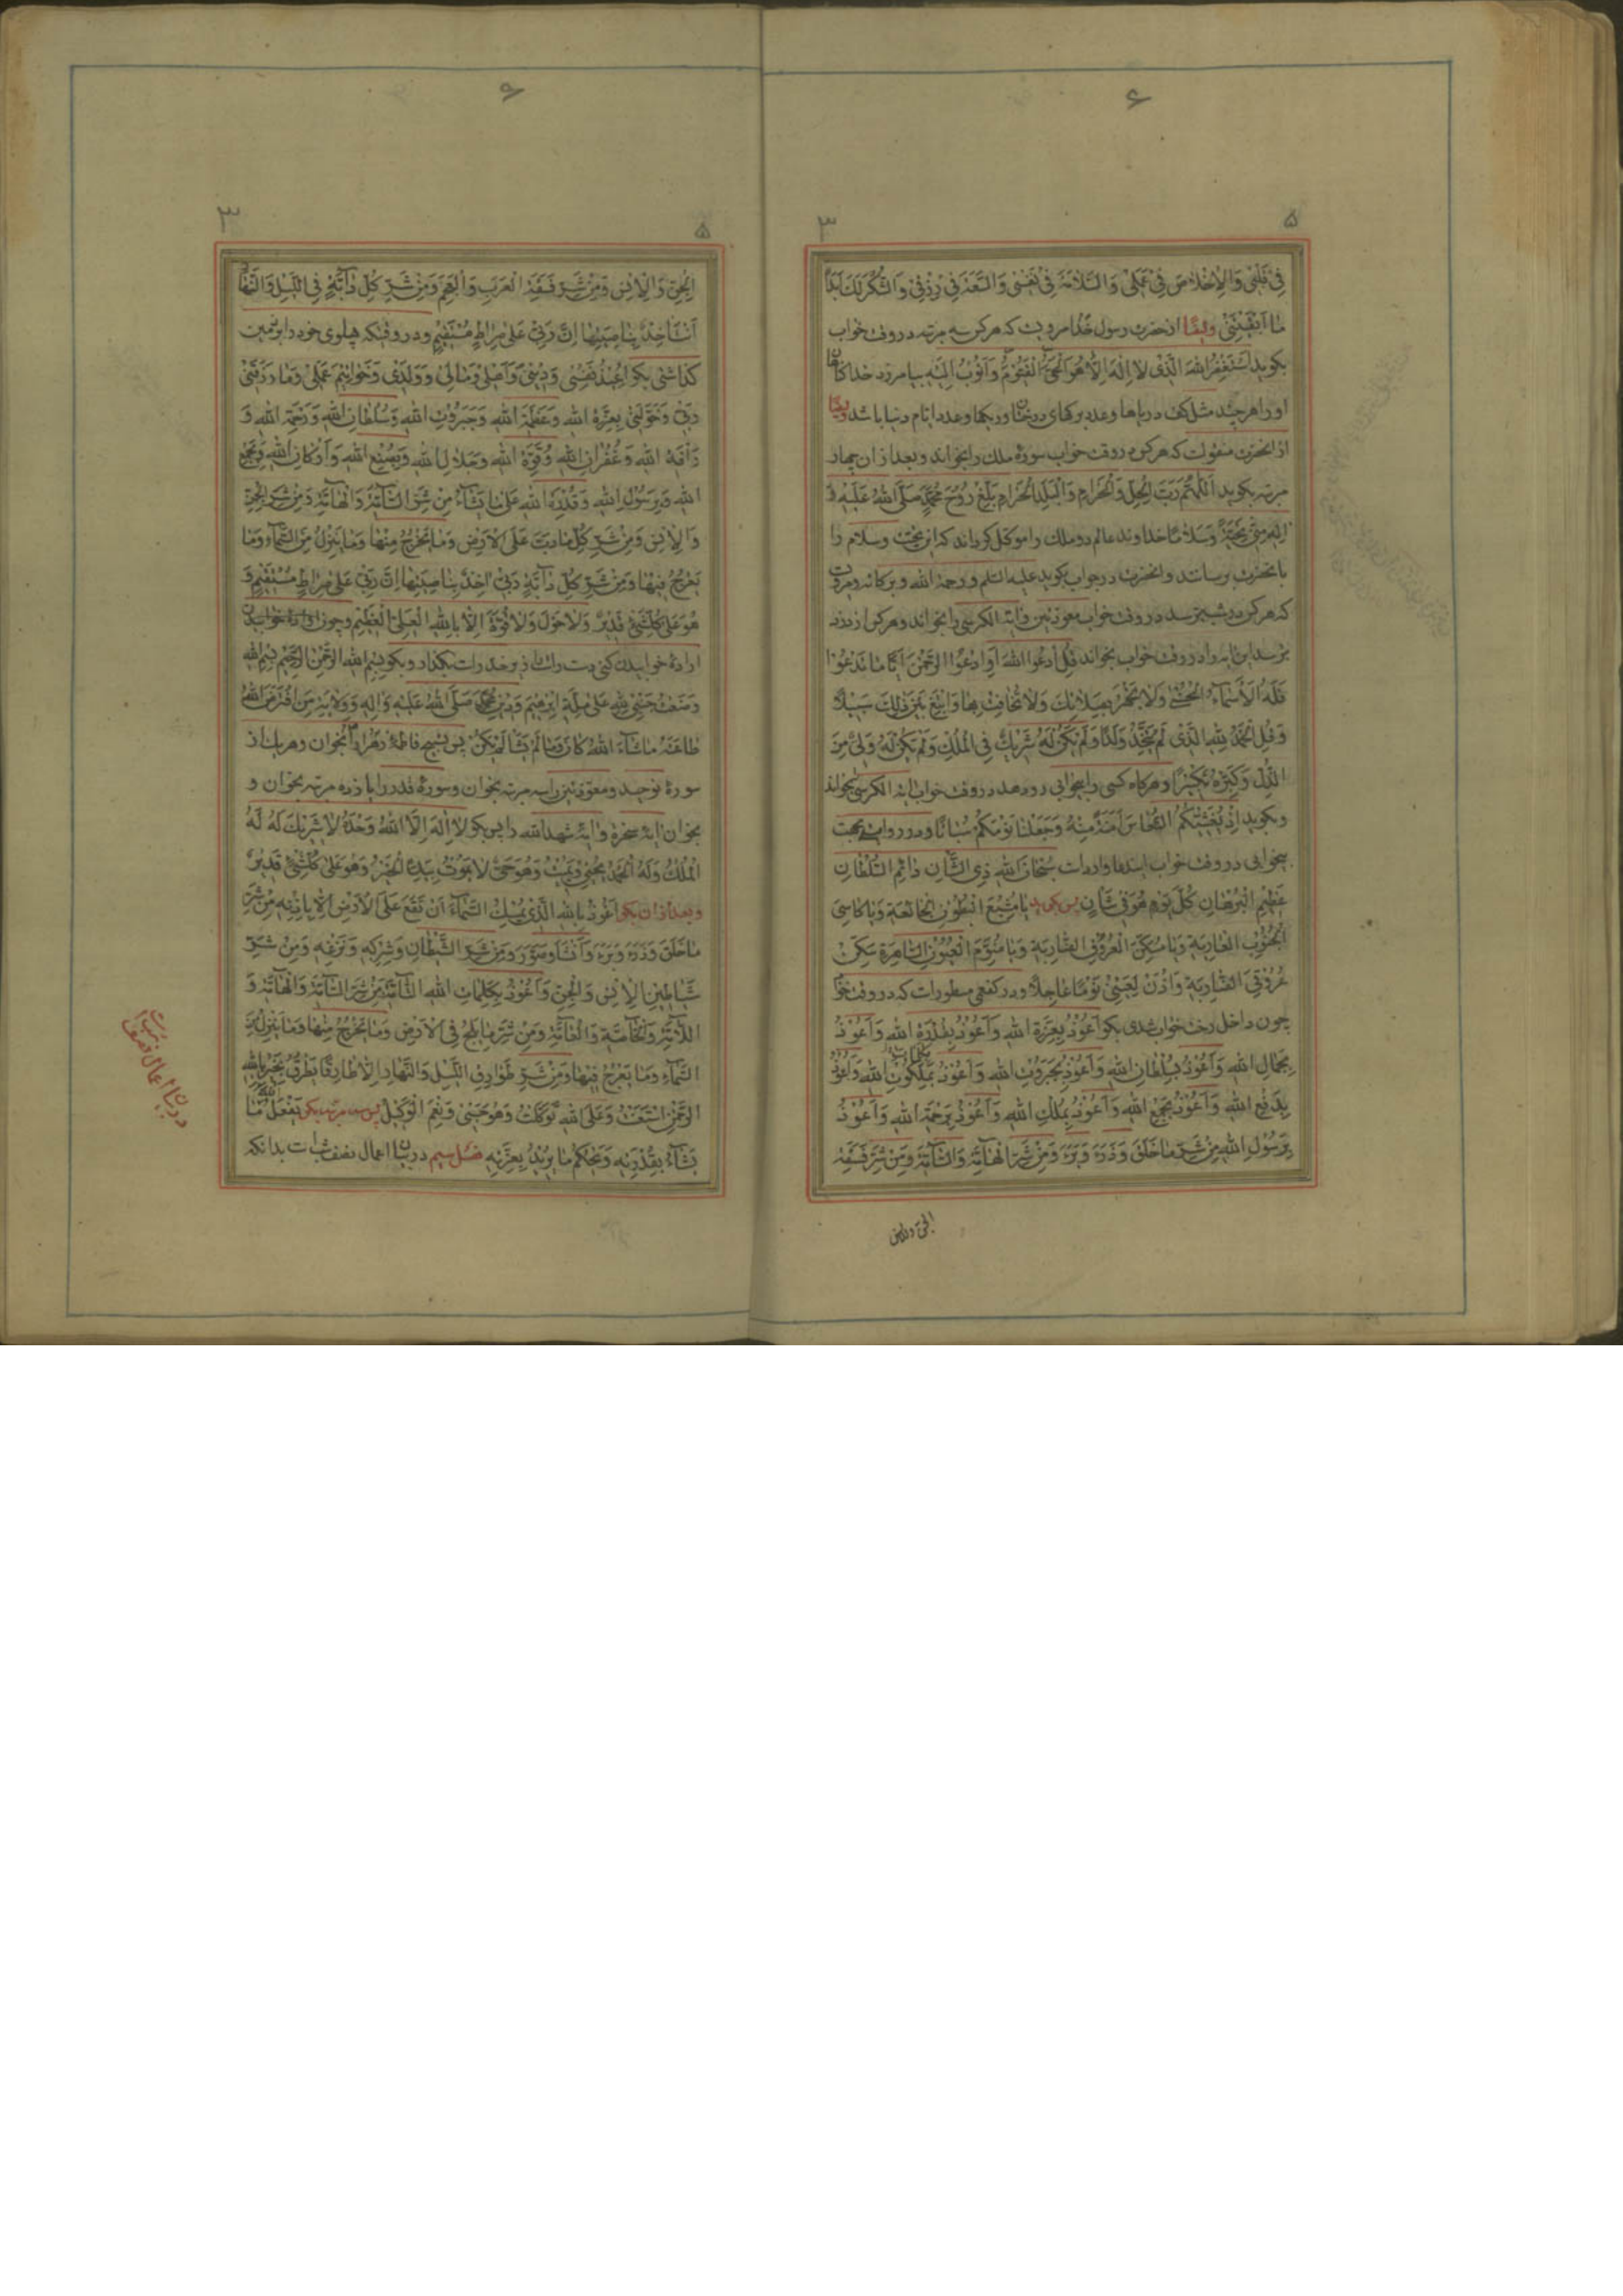 ۶
۵
۳
فِیْ قَلْبِیْ وَالْاِخْلَاصَ فِیْ عَمَلِیْ وَالسَّلَامَةَ فِیْ نَفْسِیْ وَالسَّعَةَ فِیْ رِزْقِیْ وَالشُّكْرَ لَكَ اَبَدًا
مَا اَبْقَيْتَنِیْ وایضًا از حضرت رسول خدا مرویست که هر کس سه مرتبه در وقت خواب
بگوید اَسْتَغْفِرُ اللهَ الَّذِیْ لَا اِلٰهَ اِلَّا هُوَ الْحَیُّ الْقَیُّوْمُ وَاَتُوْبُ اِلَیْهِ بیامرزد خدا گناهان
او را هر چند مثل کف دریاها و عدد برکهای درختان و ریکها و عدد ایام دنیا باشد وایضًا
از انحضرت منقولست که هر کس در وقت خواب سورهٔ ملک را بخواند و بعد از ان چهار
مرتبه بگوید اَللّٰهُمَّ رَبَّ الْحِلِّ وَالْحَرَامِ وَالْبَلَدِ الْحَرَامِ بَلِّغْ رُوْحَ مُحَمَّدٍ صَلَّی اللهُ عَلَیْهِ وَ
اٰلِهِ مِنِّیْ تَحِیَّةً وَسَلَامًا خداوند عالم دو ملک را موکل گرداند که این تحیت و سلام را
بانحضرت برسانند و انحضرت در جواب بگوید علیه السلم و رحمة الله و برکاته و مرویست
که هر کس در شب بترسد در وقت خواب معوذتین و ایة الکرسی را بخواند و هر کس از دزد
بترسد این ایه را در وقت خواب بخواند قُلِ ادْعُوا اللهَ اَوِ ادْعُوا الرَّحْمٰنَ اَیًّا مَا تَدْعُوْا
فَلَهُ الْاَسْمَآءُ الْحُسْنٰی وَلَا تَجْهَرْ بِصَلَاتِكَ وَلَا تُخَافِتْ بِهَا وَابْتَغِ بَیْنَ ذٰلِكَ سَبِیْلًا
وَقُلِ الْحَمْدُ لِلّٰهِ الَّذِیْ لَمْ یَتَّخِذْ وَلَدًا وَلَمْ یَكُنْ لَهُ شَرِیْكٌ فِی الْمُلْكِ وَلَمْ یَكُنْ لَهُ وَلِیٌّ مِنَ
الذُّلِّ وَكَبِّرْهُ تَكْبِیْرًا و هرکاه کسی را بیخوابی رو دهد در وقت خواب ایة الکرسی بخواند
و بگوید اِذْ یُغَشِّیْكُمُ النُّعَاسَ اَمَنَةً مِنْهُ وَجَعَلْنَا نَوْمَكُمْ سُبَاتًا و در روایتی بجهت
بیخوابی در وقت خواب ایندعا وارد است سُبْحَانَ اللهِ ذِی الشَّانِ دَائِمِ السُّلْطَانِ
عَظِیْمِ الْبُرْهَانِ كُلَّ یَوْمٍ هُوَ فِیْ شَانٍ پس بگوید یَا مُشْبِعَ الْبُطُوْنِ الْجَائِعَةِ وَیَا كَاسِیَ
الْجُنُوْبِ الْعَارِیَةِ وَیَا مُسَكِّنَ الْعُرُوْقِ الضَّارِبَةِ وَیَا مُنَوِّمَ الْعُیُوْنِ السَّاهِرَةِ سَكِّنْ
عُرُوْقِیَ الضَّارِبَةَ وَاْذَنْ لِعَیْنِیْ نَوْمًا عَاجِلًا و در کفعمی مسطورست که در وقت خواب
چون داخل رخت خواب شدی بکو اَعُوْذُ بِعِزَّةِ اللهِ وَاَعُوْذُ بِقُدْرَةِ اللهِ وَاَعُوْذُ
بِجَمَالِ اللهِ وَاَعُوْذُ بِسُلْطَانِ اللهِ وَاَعُوْذُ بِجَبَرُوْتِ اللهِ وَاَعُوْذُ بِمَلَكُوْتِ اللهِ وَاَعُوْذُ
بِدَفْعِ اللهِ وَاَعُوْذُ بِجَمْعِ اللهِ وَاَعُوْذُ بِمُلْكِ اللهِ وَاَعُوْذُ بِرَحْمَةِ اللهِ وَاَعُوْذُ
بِرَسُوْلِ اللهِ مِنْ شَرِّ مَا خَلَقَ وَذَرَءَ وَبَرَءَ وَمِنْ شَرِّ الْهَآمَّةِ وَالسَّآمَّةِ وَمِنْ شَرِّ فَسَقَةِ
الجن والانس
۶
۵
۳
الْجِنِّ وَالْاِنْسِ وَمِنْ شَرِّ فَسَقَةِ الْعَرَبِ وَالْعَجَمِ وَمِنْ شَرِّ كُلِّ دَآبَّةٍ فِی اللَّیْلِ وَالنَّهَارِ
اَنْتَ اٰخِذٌ بِنَاصِیَتِهَا اِنَّ رَبِّیْ عَلٰی صِرَاطٍ مُسْتَقِیْمٍ و در وقتیکه پهلوی خود را بر زمین
گذاشتی بکو اُعِیْذُ نَفْسِیْ وَدِیْنِیْ وَاَهْلِیْ وَمَالِیْ وَوَلَدِیْ وَخَوَاتِیْمَ عَمَلِیْ وَمَا رَزَقَنِیْ
رَبِّیْ وَخَوَّلَنِیْ بِعِزَّةِ اللهِ وَعَظَمَةِ اللهِ وَجَبَرُوْتِ اللهِ وَسُلْطَانِ اللهِ وَرَحْمَةِ اللهِ وَ
رَاْفَةِ اللهِ وَغُفْرَانِ اللهِ وَقُوَّةِ اللهِ وَجَلَالِ اللهِ وَبِصُنْعِ اللهِ وَاَرْكَانِ اللهِ وَبِجَمْعِ
اللهِ وَبِرَسُوْلِ اللهِ وَقُدْرَةِ اللهِ عَلٰی مَا یَشَآءُ مِنْ شَرِّ السَّآمَّةِ وَالْهَآمَّةِ وَمِنْ شَرِّ الْجِنِّ
وَالْاِنْسِ وَمِنْ شَرِّ كُلِّ مَا دَبَّ عَلَی الْاَرْضِ وَمَا یَخْرُجُ مِنْهَا وَمَا یَنْزِلُ مِنَ السَّمَآءِ وَمَا
یَعْرُجُ فِیْهَا وَمِنْ شَرِّ كُلِّ دَآبَّةٍ رَبِّیْ اٰخِذٌ بِنَاصِیَتِهَا اِنَّ رَبِّیْ عَلٰی صِرَاطٍ مُسْتَقِیْمٍ وَ
هُوَ عَلٰی كُلِّ شَیْءٍ قَدِیْرٌ وَلَا حَوْلَ وَلَا قُوَّةَ اِلَّا بِاللهِ الْعَلِیِّ الْعَظِیْمِ و چون
ارادهٔ خوابیدن کنی دست راست را زیر خد راست بکذار و بکو بِسْمِ اللهِ الرَّحْمٰنِ الرَّحِیْمِ بِسْمِ اللهِ
وَضَعْتُ جَنْبِیْ لِلّٰهِ عَلٰی مِلَّةِ اِبْرٰهِیْمَ وَدِیْنِ مُحَمَّدٍ صَلَّی اللهُ عَلَیْهِ وَاٰلِهِ وَوِلَایَةِ مَنِ افْتَرَضَ اللهُ
طَاعَتَهُ مَا شَآءَ اللهُ كَانَ وَمَا لَمْ یَشَا لَمْ یَكُنْ پس تسبیح فاطمهٔ زهرا را بخوان و هر یک از
سورهٔ توحید و معوذتین را سه مرتبه بخوان و سورهٔ قدر را یازده مرتبه بخوان و
بخوان ایهٔ سخره و ایهٔ شهد الله را پس بکو لَا اِلٰهَ اِلَّا اللهُ وَحْدَهُ لَا شَرِیْكَ لَهُ لَهُ
الْمُلْكُ وَلَهُ الْحَمْدُ یُحْیِیْ وَیُمِیْتُ وَهُوَ حَیٌّ لَا یَمُوْتُ بِیَدِهِ الْخَیْرُ وَهُوَ عَلٰی كُلِّ شَیْءٍ قَدِیْرٌ
و بعد از ان بکو اَعُوْذُ بِاللهِ الَّذِیْ یُمْسِكُ السَّمَآءَ اَنْ تَقَعَ عَلَی الْاَرْضِ اِلَّا بِاِذْنِهِ مِنْ شَرِّ
مَا خَلَقَ وَذَرَءَ وَبَرَءَ وَاَنْشَاَ وَصَوَّرَ وَمِنْ شَرِّ الشَّیْطَانِ وَشِرْكِهِ وَنَزْغِهِ وَمِنْ شَرِّ
شَیَاطِیْنِ الْاِنْسِ وَالْجِنِّ وَاَعُوْذُ بِكَلِمَاتِ اللهِ التَّآمَّةِ مِنْ شَرِّ السَّآمَّةِ وَالْهَآمَّةِ وَ
اللَّآمَّةِ وَالْخَآصَّةِ وَالْعَآمَّةِ وَمِنْ شَرِّ مَا یَلِجُ فِی الْاَرْضِ وَمَا یَخْرُجُ مِنْهَا وَمَا یَنْزِلُ مِنَ
السَّمَآءِ وَمَا یَعْرُجُ فِیْهَا وَمِنْ شَرِّ طَوَارِقِ اللَّیْلِ وَالنَّهَارِ اِلَّا طَارِقًا یَطْرُقُ بِخَیْرٍ بِاللهِ
الرَّحْمٰنِ اسْتَعَنْتُ وَعَلَی اللهِ تَوَكَّلْتُ وَهُوَ حَسْبِیْ وَنِعْمَ الْوَكِیْلُ پس سه مرتبه بکو یَفْعَلُ اللهُ مَا
یَشَآءُ بِقُدْرَتِهِ وَیَحْكُمُ مَا یُرِیْدُ بِعِزَّتِهِ فصل سیم در بیان اعمال نصف شب است بدانکه
در بیان اعمال نصف شب است